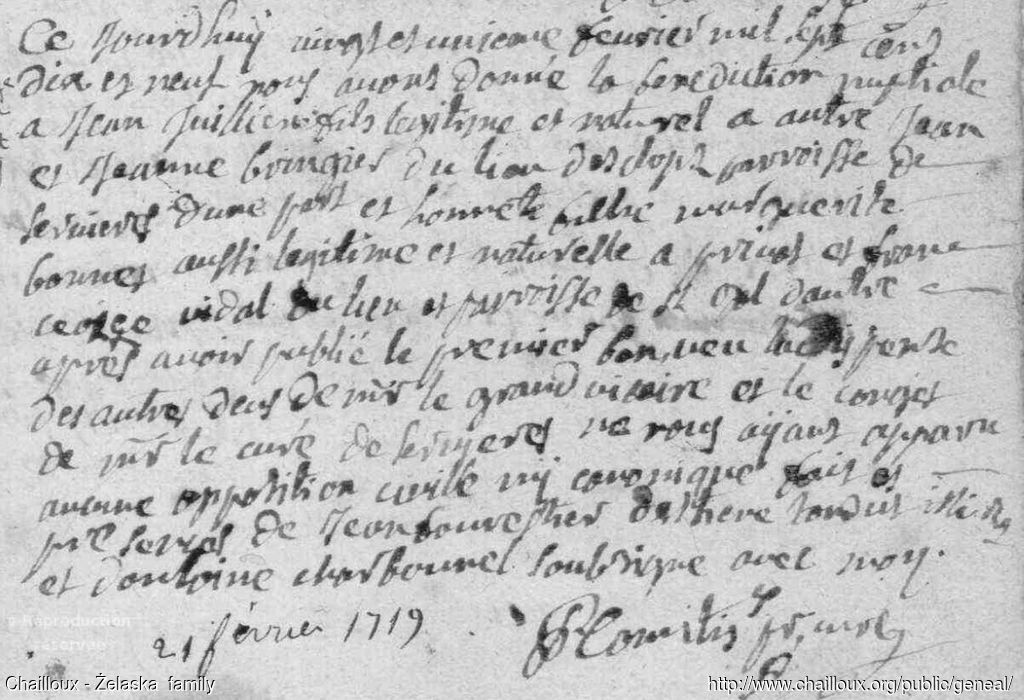 Ce jourdhuij vingt et unieme fevrier mil sept cens
dix et neuf nous avons donné la benediction nuptiale
a Jean Juillien fils legitime et naturel a autre Jean
et Jeanne bringier du lieu parroisse de
servieres dune part et honnete fillie marguerite
bonnet aussi legitime et naturelle a privat et fran
ceoise vidal du lieu et parroisse de st dautre
apres avoir publié le premier ban, veu la dispense
des autres deus de mr le grand vicaire et le conget
de mr le curé de servieres ne nous aijant apparu
aucune opposition civille nij canonique fait et
de Jean
et d'antoine charbonnel soubsigne avec moy.
21 février 1719
© Reproduction
réservée
Chailloux - Żelaska family
http://www.chailloux.org/public/geneal/